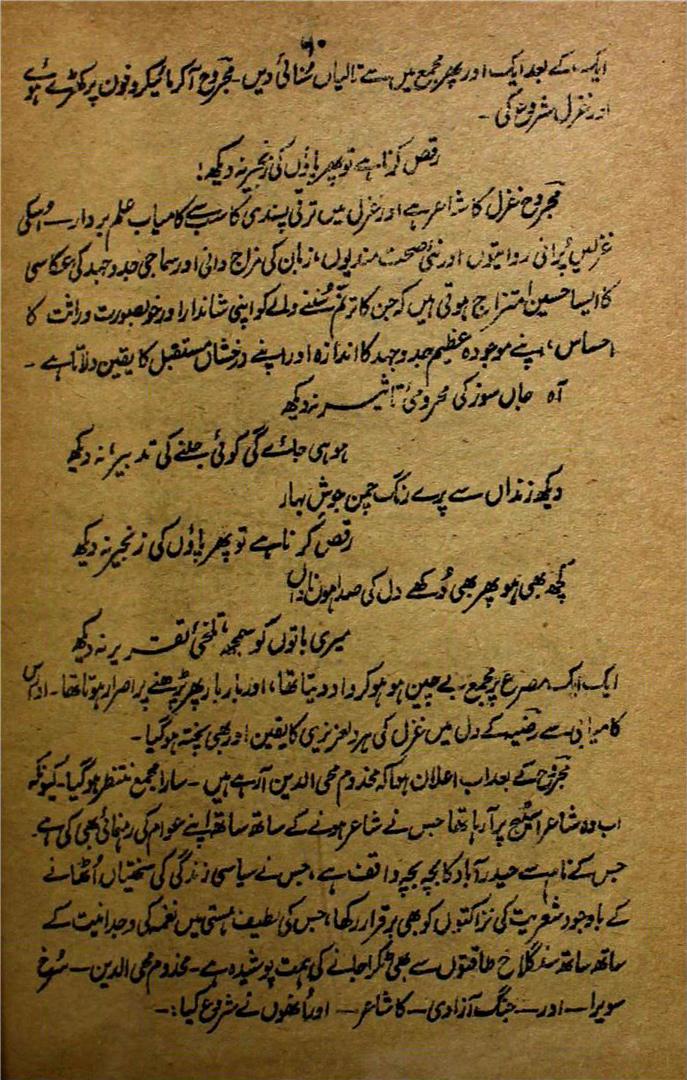 ۹۰
ایک، کے بعد ایک اور پھر مجمع میں سے تالیاں سُنائی دیں۔ مجروح آ کر مائیکروفون پر کھڑے ہوئے
اور غزل شروع کی۔
رقص کرنا ہے تو پھر پاؤں کی زنجیر نہ دیکھ!
مجروح غزل کا شاعر ہے اور غزل میں ترقی پسندی کا سب سے کامیاب علم بردار۔ اسکی
غزلیں پُرانی روایتوں اور نئی صحت مندیوں، زبان کی مزاج دانی اور سماجی جدوجہد کی عکاسی
کا ایسا حسین امتزاج ہوتی ہیں کہ جن کا ترنم سُننے والے کو اپنی شاندار اور خوبصورت وراثت کا
احساس، اپنے موجودہ عظیم جدوجہد کا اندازہ اور اپنے درخشاں مستقبل کا یقین دلاتا ہے۔
آہ جاں سوز کی محرومیٔ تاثیر نہ دیکھ
ہو ہی جائے گی کوئی جینے کی تدبیر نہ دیکھ
دیکھ زنداں سے پرے رنگ چمن جوشِ بہار
رقص کرنا ہے تو پھر پاؤں کی زنجیر نہ دیکھ
کچھ بھی ہو پھر بھی دُکھے دل کی صدا ہوں ناداں
میری باتوں کو سمجھ تلخیٔ تقریر نہ دیکھ
ایک ایک مصرع پر مجمع بے چین ہو ہو کر داد دیتا تھا، اور بار بار پھر پڑھنے پر اصرار ہوتا تھا۔ اور اس
کامیابی سے رضیہ کے دل میں غزل کی ہر دلعزیزی کا یقین اور بھی پختہ ہو گیا۔
مجروح کے بعد اب اعلان ہوا کہ مخدوم محی الدین آ رہے ہیں۔ سارا مجمع منتظر ہو گیا۔ کیونکہ
اب وہ شاعر اسٹیج پر آ رہا تھا جس نے شاعر ہونے کے ساتھ ساتھ اپنے عوام کی رہنمائی بھی کی ہے۔
جس کے نام سے حیدرآباد کا بچہ بچہ واقف ہے، جس نے سیاسی زندگی کی سختیاں اُٹھانے
کے باوجود شعریت کی نزاکتوں کو بھی برقرار رکھا، جس کی لطیف ہستی میں نغمہ کی وجدانیت کے
ساتھ ساتھ سنگلاخ طاقتوں سے بھی ٹکرا جانے کی ہمت پوشیدہ ہے۔ مخدوم محی الدین — سُرخ
سویرا — اور — جنگ آزادی — کا شاعر — اور اُنھوں نے شروع کیا:۔